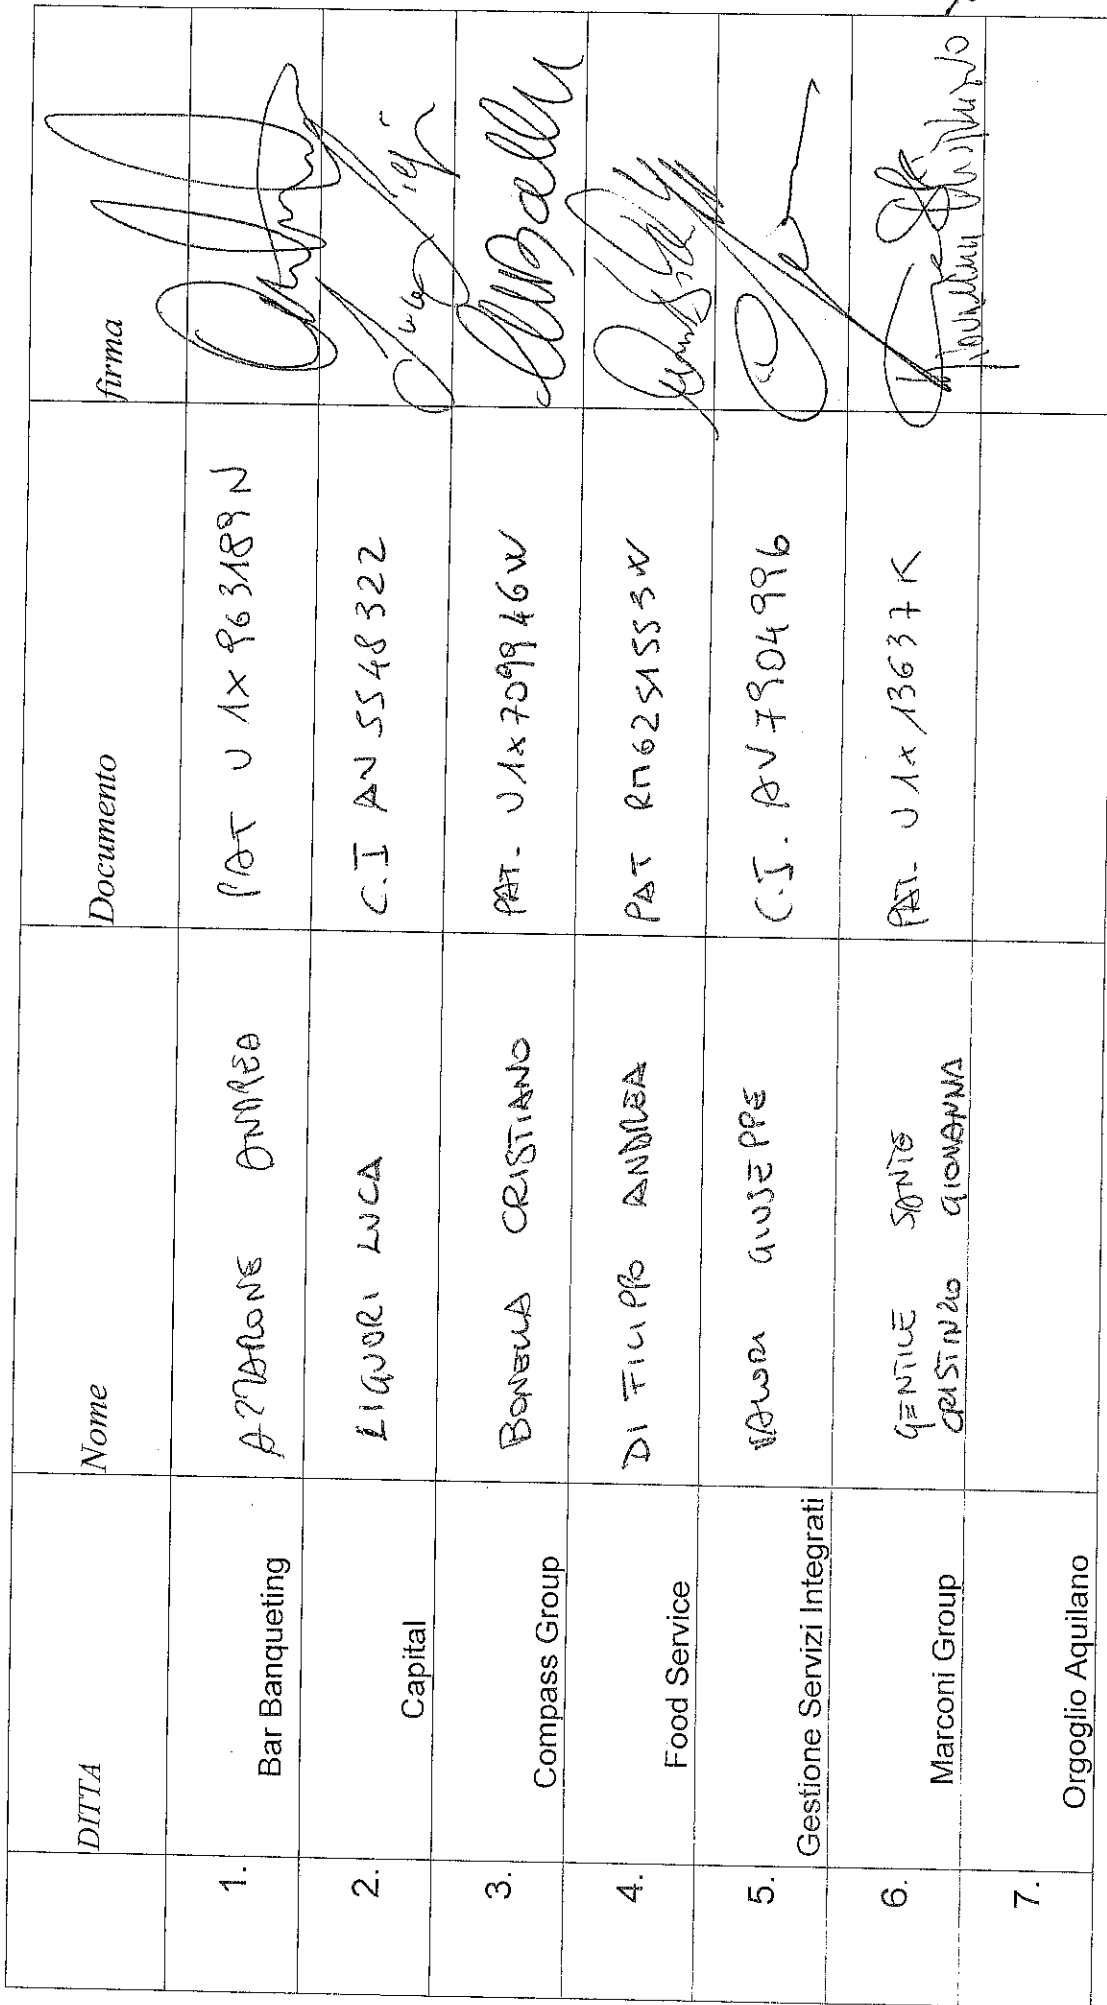 DITTA Nome Documento firma
1. Bar Banqueting AZZARONE ANDREA PAT U1X963189N
2. Capital LIGUORI LUCA C.I AN 5548322
3. Compass Group BONELLA CRISTIANO PAT. U1X709946W
4. Food Service DI FILIPPO ANDREA PAT RM6251553W
5. Gestione Servizi Integrati GIUSEPPE C.I. AV7904996
6. Marconi Group GENTILE SANTE PAT. U1X13637K
CRISTINZIO GIOVANNA
7. Orgoglio Aquilano